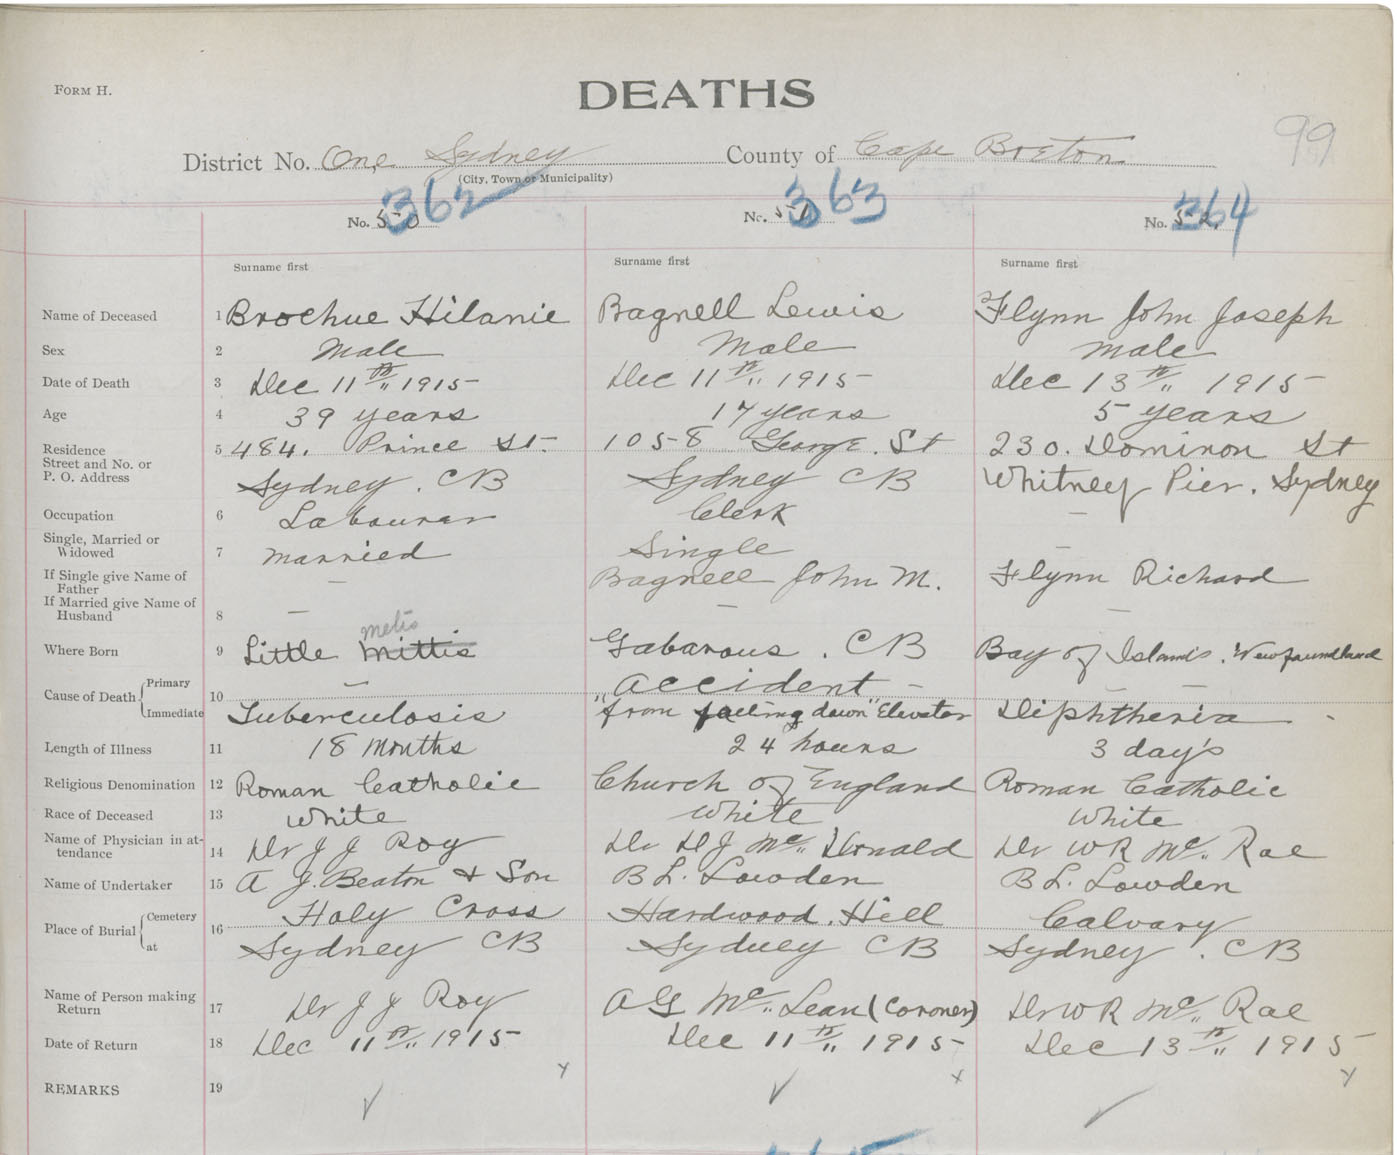 FORM H.
DEATHS
99
District No. One Sydney County of Cape Breton
(City, Town or Municipality)
362 363 364
No. 50 No. 51 No. 52
Surname first Surname first Surname first
Name of Deceased 1 Brochue Hilanie Bagnell Lewis Flynn John Joseph
Sex 2 Male Male Male
Date of Death 3 Dec 11th 1915 Dec 11th 1915 Dec 13th 1915
Age 4 39 years 17 years 5 years
Residence 5 484. Prince St. 1058 George. St 230. Dominion St
Street and No. or
P. O. Address Sydney. CB Sydney CB Whitney Pier. Sydney
Occupation 6 Labourer Clerk —
Single, Married or
Widowed 7 married Single —
If Single give Name of
Father — Bagnell John M. Flynn Richard
If Married give Name of
Husband 8 — — —
metis
Where Born 9 Little Mittis Gabarous. CB Bay of Islands. Newfoundland
Cause of Death Primary 10 — "Accident — — —
Immediate Tuberculosis from falling down" Elevator Diphtheria
Length of Illness 11 18 Months 24 hours 3 day's
Religious Denomination 12 Roman Catholic Church of England Roman Catholic
Race of Deceased 13 White White White
Name of Physician in at-
tendance 14 Dr J J Roy Dr D J Mc Donald Dr W R Mc Rae
Name of Undertaker 15 A J. Beaton & Son B L. Lowden B L. Lowden
Place of Burial Cemetery 16 Holy Cross Hardwood. Hill Calvary
at Sydney CB Sydney CB Sydney. CB
Name of Person making
Return 17 Dr J J Roy A G Mc Lean (Coroner) Dr W R Mc Rae
Date of Return 18 Dec 11th 1915 Dec 11th 1915 Dec 13th 1915
x x x
REMARKS 19 ✓ ✓ ✓